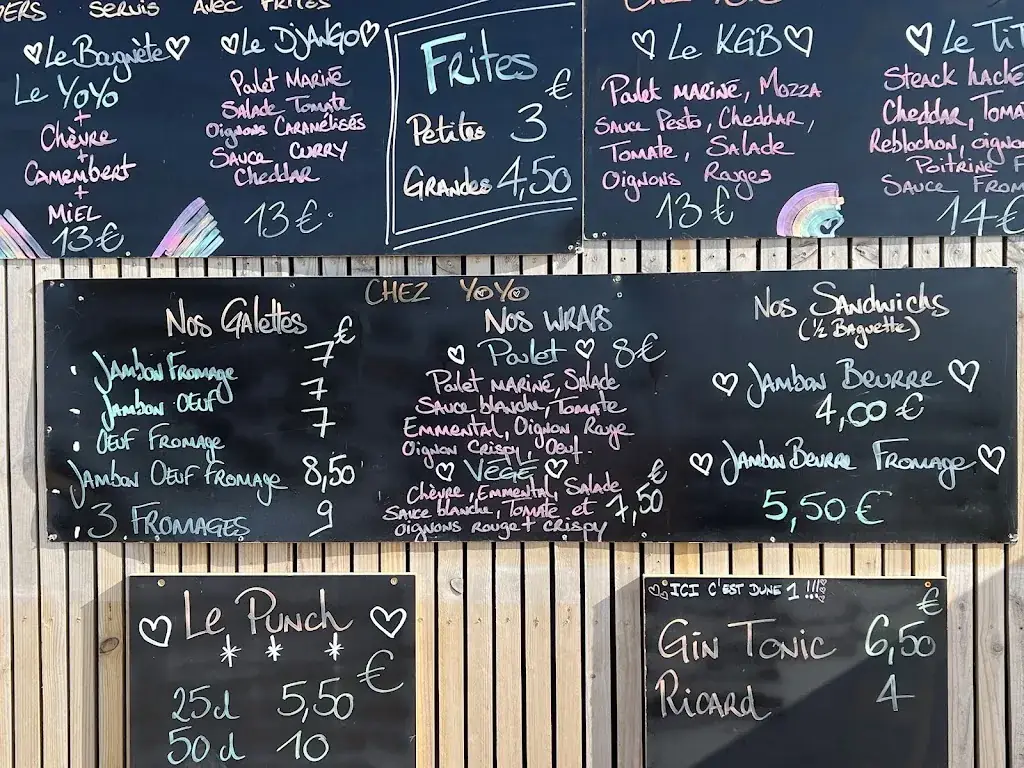 SERVIS AVEC FRITES
Le Baugnète
Le YoYo
+
Chèvre
+
Camembert
+
Miel
13€
Le DJANGO
Poulet MARINÉ
Salade Tomate
Oignons CARAMÉLISÉS
SAUCE CURRY
Cheddar
13€
FRITES
€
Petites 3
GRANDES 4,50
CHEZ YOYO
Le KGB
Poulet MARINÉ, Mozza
Sauce Pesto, Cheddar,
Tomate, Salade
Oignons Rouges
13€
Le TiT
Steack haché
Cheddar, Toma
Reblochon, oignon
Poitrine F
Sauce From
14€
CHEZ YOYO
Nos Galettes
€
. Jambon Fromage 7
. Jambon OEUF 7
. OEUF FROMAGE 7
. Jambon OEUF FROMAGE 8,50
. 3 FROMAGES 9
NOS WRAPS
Poulet 8€
Poulet MARINÉ, Salade
Sauce blanche, Tomate
Emmental, Oignon Rouge
Oignon Crispy, Oeuf.
VÉGÉ €
Chèvre, Emmental, Salade 7,50
Sauce blanche, Tomate et
oignons rouge + crispy
Nos Sandwichs
(1/2 Baguette)
Jambon Beurre
4,00 €
Jambon Beurre Fromage
5,50 €
Le Punch
€
25cl 5,50
50cl 10
ICI C'EST DUNE 1 !!!
€
Gin Tonic 6,50
Ricard 4